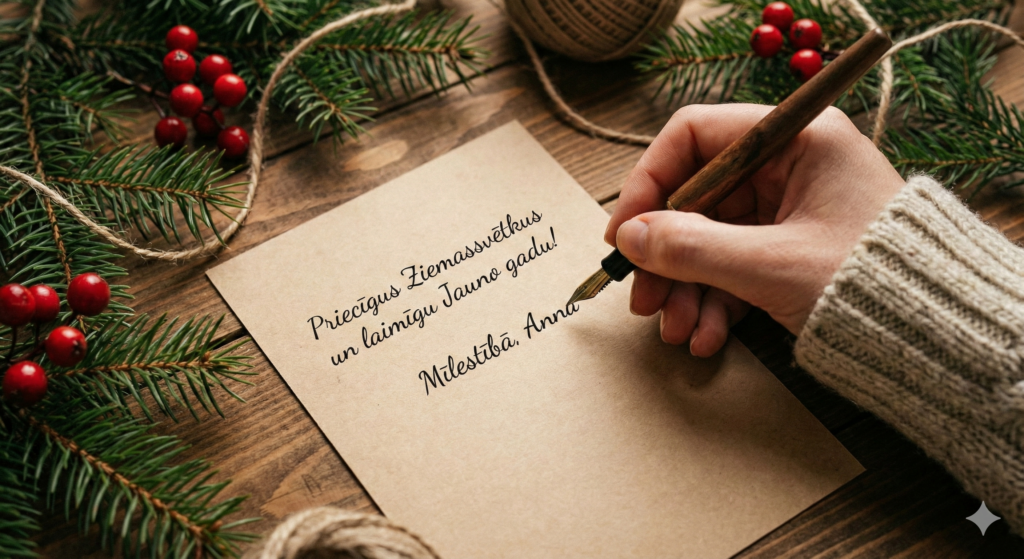 Priecīgus Ziemassvētkus
un laimīgu Jauno gadu!
Mīlestībā, Anna